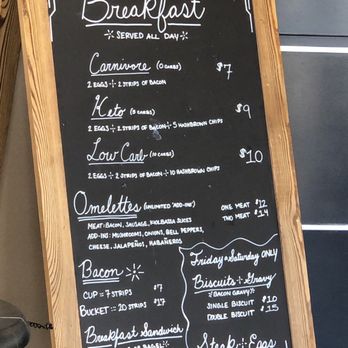 Breakfast
SERVED ALL DAY
Carnivore (0 CARBS) $7
2 EGGS + 2 STRIPS OF BACON
Keto (5 CARBS) $9
2 EGGS + 2 STRIPS OF BACON + 5 HASHBROWN CHIPS
Low Carb (10 CARBS) $10
2 EGGS + 2 STRIPS OF BACON + 10 HASHBROWN CHIPS
Omelettes (UNLIMITED "ADD-INS") ONE MEAT $12
TWO MEAT $14
MEAT: BACON, SAUSAGE, SLICES
ADD-INS: MUSHROOMS, ONIONS, BELL PEPPERS,
CHEESE, JALAPEÑOS, HABAÑEROS
Bacon
CUP = 7 STRIPS $7
BUCKET = 20 STRIPS $17
Breakfast Sandwich
BAGEL
Friday + Saturday ONLY
Biscuits + Gravy
(BACON GRAVY)
SINGLE BISCUIT $10
DOUBLE BISCUIT $15
Steak + Eggs